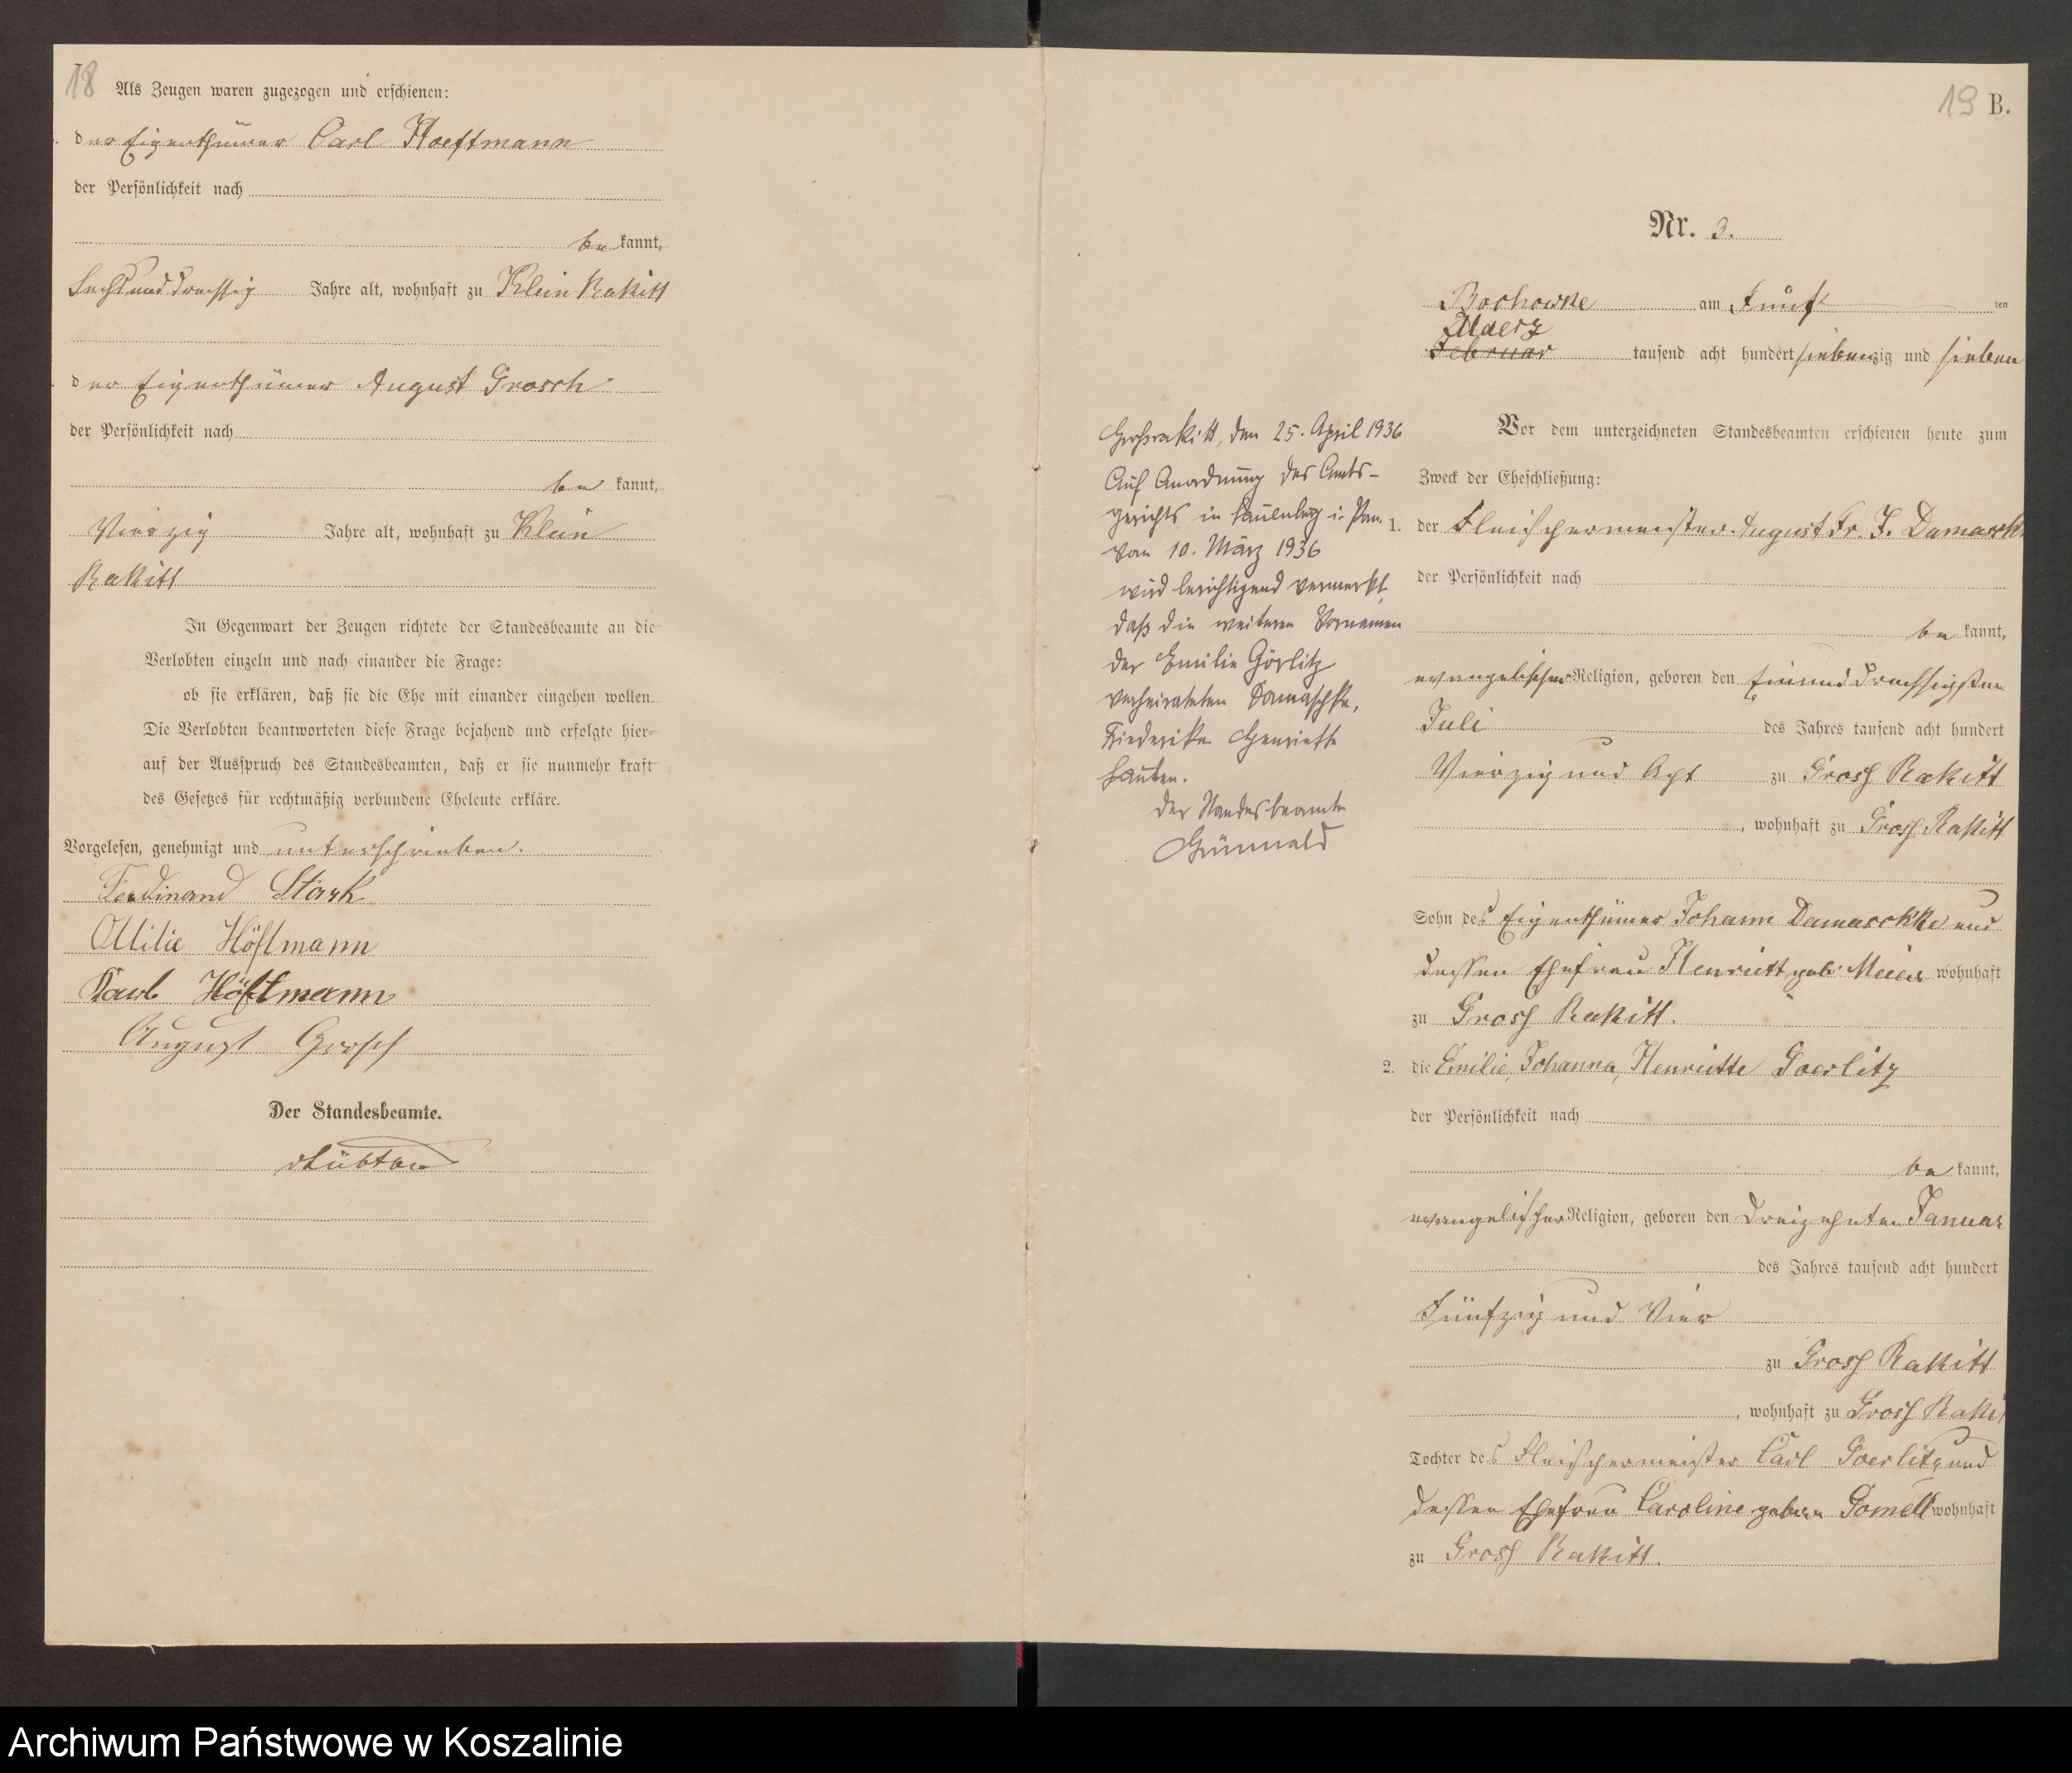 18
Als Zeugen waren zugezogen und erschienen:
der Eigenthümer Carl Hoeftmann
der Persönlichkeit nach
be kannt,
Sechsunddreissig Jahre alt, wohnhaft zu Klein Rakitt
der Eigenthümer August Grosch
der Persönlichkeit nach
be kannt,
Vierzig Jahre alt, wohnhaft zu Klein
Rakitt
In Gegenwart der Zeugen richtete der Standesbeamte an die
Verlobten einzeln und nach einander die Frage:
ob sie erklären, daß sie die Ehe mit einander eingehen wollen.
Die Verlobten beantworteten diese Frage bejahend und erfolgte hier-
auf der Ausspruch des Standesbeamten, daß er sie nunmehr kraft
des Gesetzes für rechtmäßig verbundene Eheleute erkläre.
Vorgelesen, genehmigt und unterschrieben.
Ferdinand Stark
Ottilie Höftmann
Karl Höftmann
August Grosch
Der Standesbeamte.
19 B.
Nr. 3.
Bochowke am Fünf ten
Maerz
Februar tausend acht hundert siebenzig und sieben
Vor dem unterzeichneten Standesbeamten erschienen heute zum
Zweck der Eheschließung:
1. der Fleischermeister August Fr. J. Damaschk
der Persönlichkeit nach
be kannt,
evangelischer Religion, geboren den Einunddreissigsten
Juli des Jahres tausend acht hundert
Vierzig und Acht zu Gross Rakitt
, wohnhaft zu Gross Rakitt
Sohn des Eigenthümer Johann Damaschke und
dessen Ehefrau Henriett geb: Meier wohnhaft
zu Gross Rakitt.
2. die Emilie, Johanna, Henriette Goerlitz
der Persönlichkeit nach
be kannt,
evangelischer Religion, geboren den Dreizehnten Januar
des Jahres tausend acht hundert
Fünfzig und Vier
zu Gross Rakitt
, wohnhaft zu Gross Raki
Tochter des Fleischermeister Carl Goerlitz und
dessen Ehefrau Caroline geborn Gomell wohnhaft
zu Gross Rakitt.
Großrakitt, den 25. April 1936
Auf Anordnung des Amts-
gerichts in Lauenburg i. Pom.
vom 10. März 1936
wird berichtigend vermerkt,
daß die weiteren Vornamen
der Emilie Görlitz
verheirateten Damaschke,
Friederike Henriette
lauten.
Der Standesbeamte
Grünwald
Archiwum Państwowe w Koszalinie